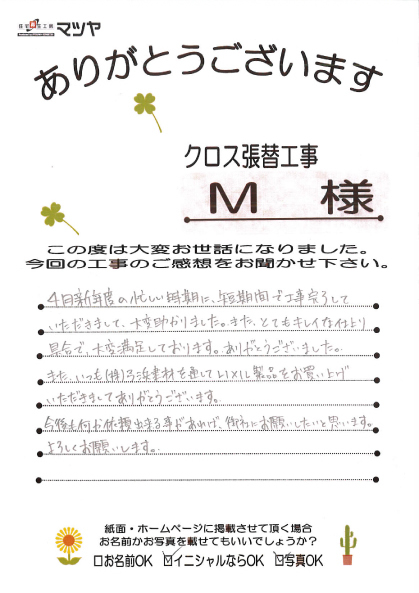 マツヤ
ありがとうございます
クロス張替工事
M 様
この度は大変お世話になりました。
今回の工事のご感想をお聞かせ下さい。
4月新年度の忙しい時期に、短期間で工事完了して
いただきまして、大変助かりました。また、とてもキレイな仕上り
具合で、大変満足しております。ありがとうございました。
また、いつも(株) 建材を通してLIXIL製品をお買い上げ
いただきましてありがとうございます。
今後も何か依頼出来る事があれば、御社にお願いしたいと思います。
よろしくお願いします。
紙面・ホームページに掲載させて頂く場合
お名前かお写真を載せてもいいでしょうか？
□お名前OK ☑イニシャルならOK ☑写真OK